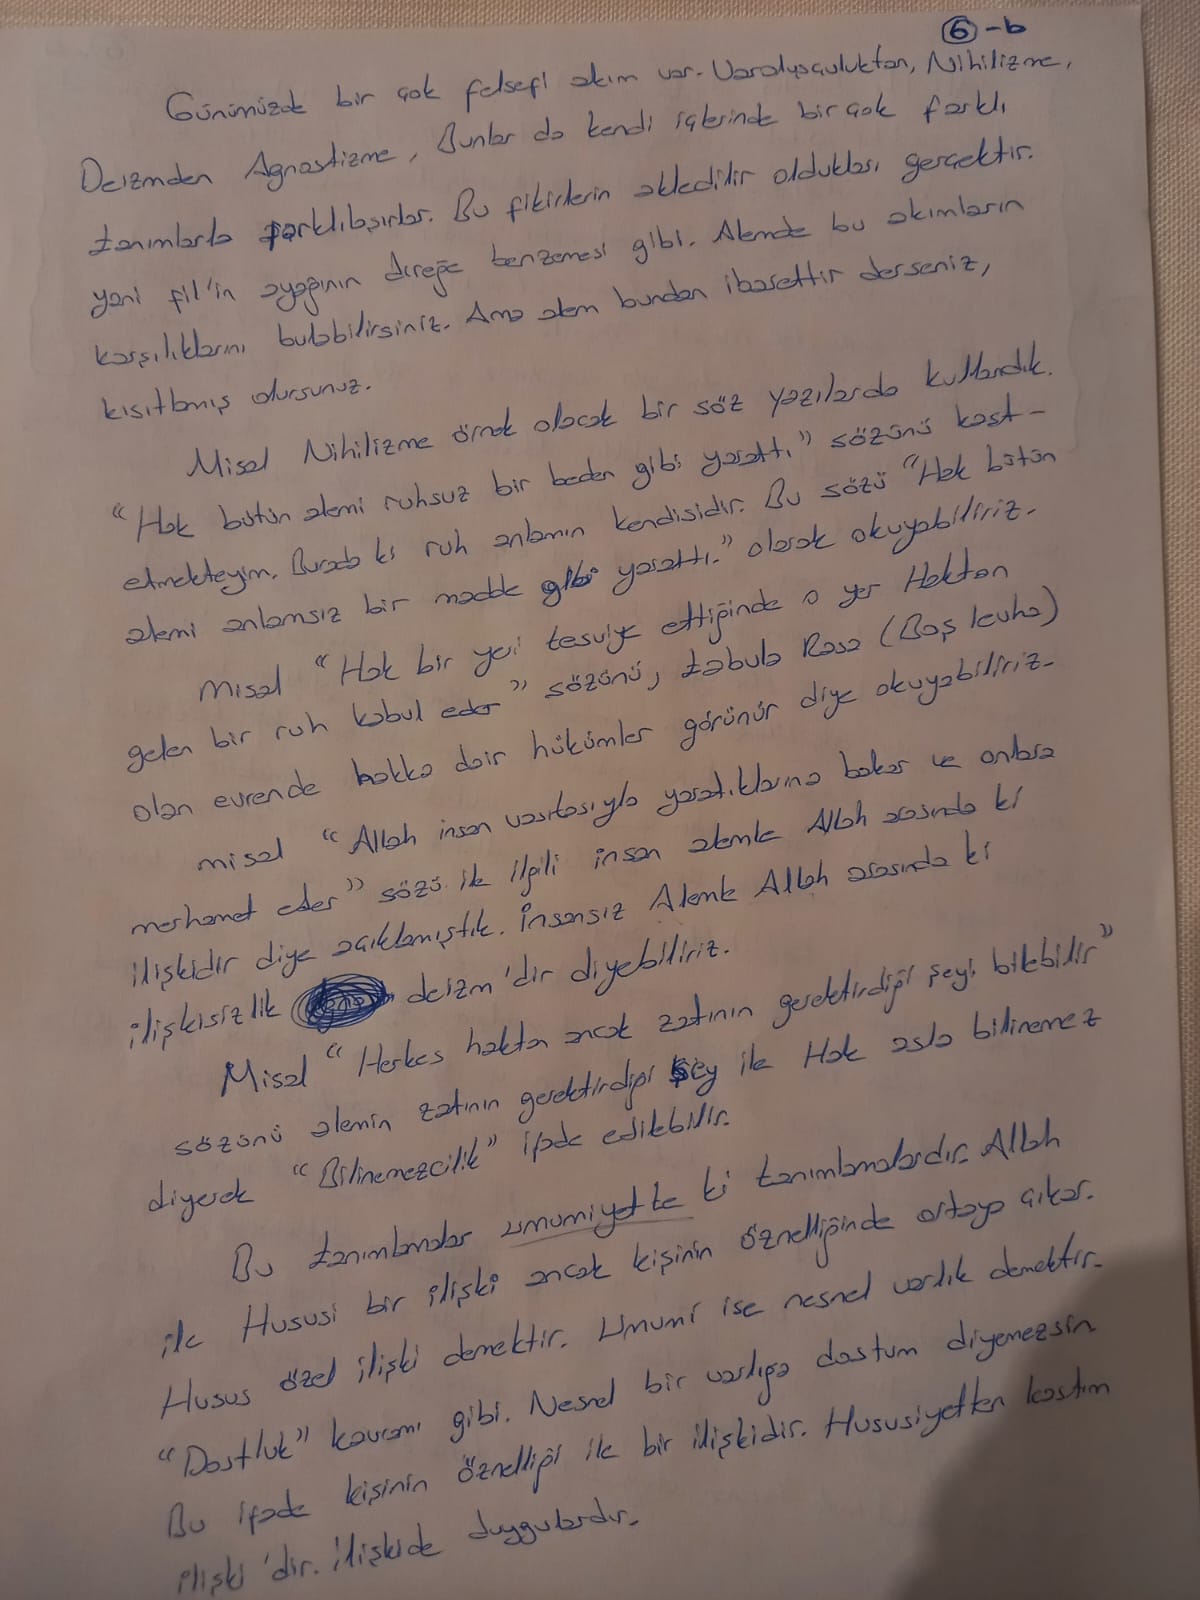 6-b
Günümüzde bir çok felsefi akım var. Varoluşçuluktan, Nihilizme,
Deizmden Agnostizme, Bunlar da kendi içlerinde bir çok farklı
tanımlarla farklılaşırlar. Bu fikirlerin akledilir oldukları gerçektir.
yani fil'in ayağının direğe benzemesi gibi. Alemde bu akımların
karşılıklarını bulabilirsiniz. Ama alem bundan ibarettir derseniz,
kısıtlamış olursunuz.
Misal Nihilizme örnek olacak bir söz yazılarda kullandık.
"Hak bütün alemi ruhsuz bir beden gibi yarattı" sözünü kast-
etmekteyim. Burada ki ruh anlamın kendisidir. Bu sözü "Hak bütün
alemi anlamsız bir madde gibi yarattı." olarak okuyabiliriz.
misal "Hak bir yeri tesviye ettiğinde o yer Haktan
gelen bir ruh kabul eder" sözünü, tabula Rasa (Boş levha)
olan evrende hakka dair hükümler görünür diye okuyabiliriz.
misal "Allah insan vasıtasıyla yaratıklarına bakar ve onlara
merhamet eder" sözü ile ilgili insan alemle Allah arasında ki
ilişkidir diye açıklamıştık. İnsansız Alemle Allah arasında ki
ilişkisizlik deizm'dir diyebiliriz.
Misal "Herkes haktan ancak zatının gerektirdiği şeyi bilebilir"
sözünü alemin zatının gerektirdiği şey ile Hak asla bilinemez
diyerek "Bilinemezcilik" ifade edilebilir.
Bu tanımlamalar umumiyette ki tanımlamalardır. Allah
ile Hususi bir ilişki ancak kişinin öznelliğinde ortaya çıkar.
Husus özel ilişki demektir. Umumi ise nesnel varlık demektir.
"Dostluk" kavramı gibi. Nesnel bir varlığa dostum diyemezsin
Bu ifade kişinin öznelliği ile bir ilişkidir. Hususiyetten kastım
ilişki'dir. İlişkide duygulardır.